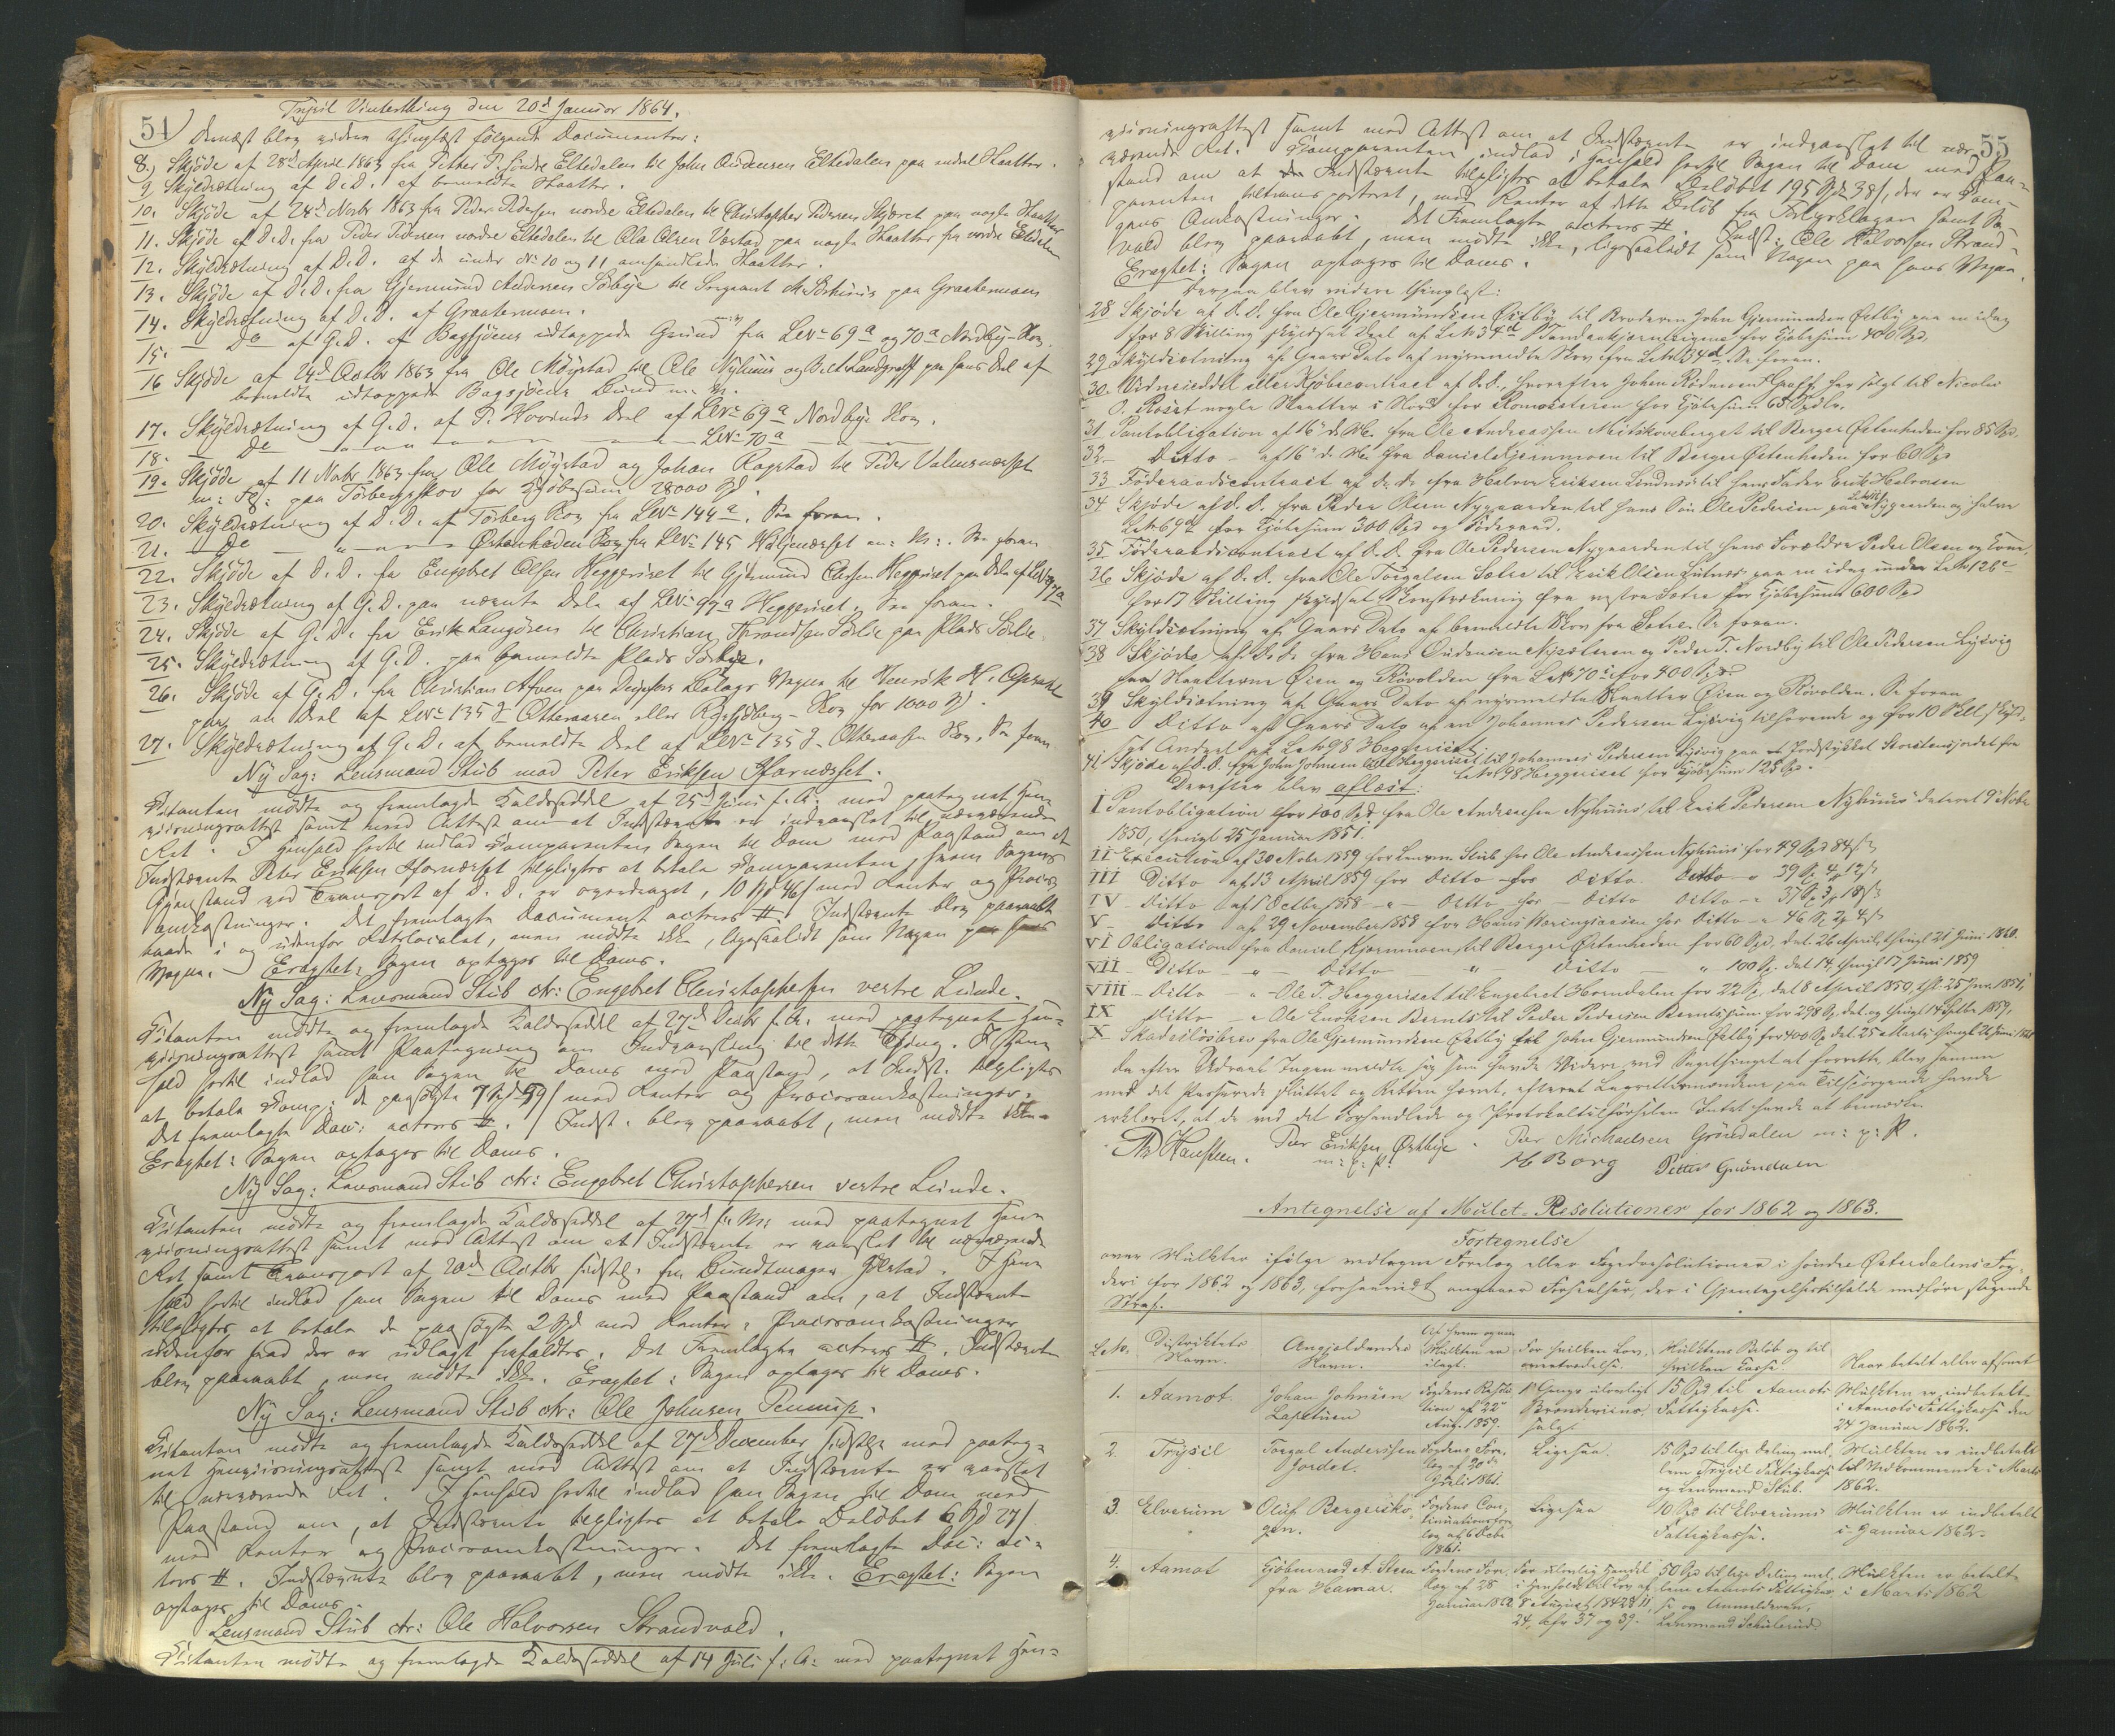 54
Trysil Vinterthing den 20d Januar 1864.
Dernæst blev videre thinglæst følgende Documenter:
8. Skjöde af 28d April 1863 fra Pether P. Söndre Eltedalen til John Andersen Eltedalen paa endeel Slaatter.
9 Skyldsætning af D.D. af bemeldte Slaatter.
10. Skjöde af 24d Novbr 1863 fra Peder Pedersen nordre Eltedalen til Christopher Pedersen Skjæret paa nogle Slaatter
11. Skjöde af D.D. fra Peder Pedersen nordre Eltedalen til Ola Olsen Værstad paa nogle Slaatter fra nordre Eltedalen
12. Skyldsætning af D.D. af de under No 10 og 11 omhandlede Slaatter.
13. Skjöde af D.D. fra Gjermund Andersen Sörbye til Sergeant M. Börhuus paa Graatenmoen
14. Skyldsætning af D.D. af Graatenmoen.
15. — Do af G.D. af Bagsjöens udtappede Grund fra LNr 69a og 70a Nordbye Skov.
16 Skjöde af 24d Octbr 1863 fra Ole Möystad til Ole Nyhuus og B. et Landgraff paa hans Del af
bemeldte udtappede Bagsjöens Bund m. m.
17. Skyldsætning af G.D. af P. Hovinds Deel af LNr 69a Nordbye Skov.
18. — Do — — — — LNr 70a —
19. Skjöde af 11 Novbr 1863 fra Ole Möystad og Johan Rogstad til Peder Valmsnæsset
m: Fl: paa Törbergskov for Kjöbesum 28000 Spd.
20. Skyldsætning af D.D. af Törberg Skov fra LNr 144a. Se foran.
21. — Do — Östenheden Skov fra LNr 145 Wæljenæsset m: M: . Se foran
22. Skjöde af D.D. fra Engebret Olsen Heggeriset til Gjermund Olsen Heggeriset paa Dele af LNr 97a
23. Skyldsætning af G.D. paa nævnte Dele af LNr 97a Heggeriset. Se foran.
24. Skjöde af G.D. fra Erik Langösen til Christian Throndsen Sörlie paa Plads Sörlie.
25. Skyldsætning af G.D. paa bemeldte Plads Sörlie.
26. Skjöde af G.D. fra Christian Astven paa Deigsfors Bolags Vegne til Henrik H. Opsahl
paa en Deel af LNr 135 Otteraasen eller Rysjöberg Skov for 1000 Spd.
27. Skyldsætning af G.D. af bemeldte Deel af LNr 135 Otteraasen Skov. Se foran
Ny Sag: Lensmand Stub mod Peter Eriksen Flornæsset.
Citanten mödte og fremlagde Kaldsseddel af 25d Juni f. A. med paategnet Hen-
viisningsattest samt med Attest om at Indstævnte er indvarslet til nærværende
Ret. I Henhold hertil indlod Comparenten Sagen til Dom med Paastand om at
Indstævnte Peter Eriksen Flornæsset tilpligtes at betale Comparenten, hvem Sagens
Gjenstand ved Transport af D.D. er overdraget, 10 Spd 46 s med Renter og Proces-
omkostninger. Det fremlagte Document acteres #. Indstævnte blev paaraabt
baade i og udenfor Retslocalet, men mödte ikke, ligesaalidt som Nogen paa hans
Vegne. – Eragtet: Sagen optages til Doms.
Ny Sag: Lensmand Stub ctr: Engebret Christophersen vestre Lunde.
Citanten mödte og fremlagde Kaldsseddel af 27d Decbr f. A. med paategnet Hen-
viisningsattest samt Paategning om Indvarsling til dette Thing. I Hen-
hold hertil indlod han Sagen til Doms med Paastand, at Indst. tilpligtes
at betale Comp: de paasögte 7 Spd 59 s med Renter og Procesomkostninger.
Det fremlagte Doc: acteres #. Indst. blev paaraabt, men mödte ikke.
Eragtet: Sagen optages til Doms.
Ny Sag: Lensmand Stub ctr: Engebret Christophersen vestre Lunde.
Citanten mödte og fremlagde Kaldsseddel af 27d f. M. med paategnet Hen-
viisningsattest samt med Attest om at Indstævnte er varslet til nærværende
Ret samt Transport af 20d Octbr sidstl. fra Bundtmager Gölstad. I Hen-
hold hertil indlod han Sagen til Doms med Paastand om, at Indstævnte
tilpligtes at betale de paasögte 2 Spd med Renter & Procesomkostninger
udenfor hvad der er udlagt frafaldtes. Det Fremlagte acteres #. Indstævnte
blev paaraabt, men mödte ikke. Eragtet: Sagen optages til Doms.
Ny Sag: Lensmand Stub ctr: Ole Johnsen
Citanten mödte og fremlagde Kaldsseddel af 27d December sidstl. med paateg-
net Henviisningsattest samt med Attest om at Indstævnte er varslet
til nærværende Ret. I Henhold hertil indlod han Sagen til Dom med
Paastand om, at Indstævnte tilpligtes at betale Belöbet 6 Spd 27 s
med Renter og Procesomkostninger. Det fremlagte Doc: ac-
teres #. Indstævnte blev paaraabt, men mödte ikke. Eragtet: Sagen
optages til Doms.
Lensmand Stub ctr: Ole Halvorsen Strandvold.
Citanten mödte og fremlagde Kaldsseddel af 14 Juli f: A: med paategnet Hen-
55
viisningsattest samt med Attest om at Indstævnte er indvarslet til nær-
værende Ret. Comparenten indlod i Henhold hertil Sagen til Dom med Paa-
stand om at Indstævnte tilpligtes at betale Belöbet 195 Spd 38 s, der er Com-
parenten tiltransporteret, med Renter af dette Belöb fra Forligsklagen samt Sa-
gens Omkostninger. Det Fremlagte acteres #. Indst: Ole Halvorsen Strand-
vold blev paaraabt, men mödte ikke, ligesaalidt som Nogen paa hans Vegne.
Eragtet: Sagen optages til Doms.
Derpaa blev videre thinglyst:
28 Skjöde af D.D. fra Ole Gjermundsen Östby til Broderen John Gjermundsen Östby paa en idag
for 8 Skilling skyldsat Deel af LNr 34d Tandaakjernteigene for Kjöbesum 400 Spd.
29 Skyldsætning af Gaars Dato af nysmeldte Skov fra LNr 34d. Se foran.
30. Vidneseddel eller Kjöbecontract af D.D., hvorefter Johan Rödnersen Graff har solgt til Nicolai
O. Roset nogle Slaatter i Nord for Romosæteren for Kjöbesum 65 Spdlr.
31 Pantobligation af 16d. Ms. fra Ole Andreassen Mitskoveberget til Berger Östenheden for 85 Spd.
32 – Ditto – af 16 d. Ms. fra Daniel Kjernmoen til Berger Östenheden for 60 Spd
33 Föderaadscontract af D.D. fra Halvor Eriksen Lindnæs til hans Fader Erik Halvorsen
34 Skjöde af D.D. fra Peder Olsen Nygaarden til hans Sön Ole Pedersen paa Nygaarden og halve
LNr 69a for Kjöbesum 300 Spd og Föderaad.
35 Föderaadscontract af D.D. fra Ole Pedersen Nygaarden til hans Forældre Peder Olsen og Kone.
36 Skjöde af D.D. fra Ole Torgalsen Sætre til Erik Olsen Lutnæs paa en idag under LNr 126c
for 17 Skilling skyldsat Skovstrækning fra vestre Sætre for Kjöbesum 600 Spd
37 Skyldsætning af Gaars Dato af bemeldte Skov fra Sætre. Se foran.
38 Skjöde af D.D. fra Hans Andersen Nysæteren og Peder T. Nordby til Ole Pedersen Lysvig
paa Slaatterne Öien og Rövolden fra LNr 70 for 400 Spd
39 Skyldsætning af Gaars Dato af nysmeldte Slaatter Öien og Rövolden. Se foran
40 Ditto af Gaars Dato af en Johannes Pedersen Lysvig tilhörende og for 10 Skill. skyld-
sat Andeel af LNr 98 Heggeriset.
41 Skjöde af D.D. fra John Johnsen Heggeriset til Johannes Pedersen Lysvig paa Jordstykket Skorstensjordet fra
LNr 98 Heggeriset for Kjöbesum 125 Spd.
Derefter blev aflæst:
I Pantobligation for 100 Spd fra Ole Andreassen Nyhuus til Erik Pedersen Nyhuus dateret 9 Novbr
1850, thingl. 25 Januar 1851.
II Execution af 30 Novbr 1859 for Lensm. Stub hos Ole Andreassen Nyhuus for 49 Spd 84 s
III Ditto af 13 April 1859 for Ditto hos Ditto Ditto – 29 Sp 4 12 s
IV – Ditto af 1 Octbr 1858 – Ditto hos – Ditto Ditto – 37 Sp 3 18 s
V – Ditto af 29 November 1858 for Hans Næringsaasen hos Ditto – 46 Sp 2 4 s
VI Obligation fra Daniel Kjernmoen til Berger Östenheden for 60 Spd, dat. 26 April, thingl 21 Juni 1860.
VII – Ditto – Ditto – Ditto – 100 Sp. dat 14, thingl 17 Juni 1859
VIII – Ditto – Ole T. Heggeriset til Engebret Horndalen for 22 Sp, dat 8 April 1850, thl. 25 Jan. 1851.
IX Ditto – Ole Enoksen Bernts til Peder Pedersen Berntshuus for 298 Sp, dat. og thingl 14 Septbr 1859.
X Skadeslösbrev fra Ole Gjermundsen Östby til John Gjermundsen Östby for 400 Sp dat. 25 Marts, thingl 21 Juni 1860
Da efter Udraab Ingen meldte sig som havde Videre ved Sagethinget at forrette, blev samme
med det Passerede sluttet og Retten hævet, efterat Laugrettesmændene paa Tilspörgende havde
erklæret, at de ved det Forhandlede og Protokoltilförselen Intet havde at bemærke.
Th Hansteen. Peer Eriksen Östbye Peer Michaelsen Gröndalen m: p: P.
m: p: P. H Borg Petter Gröndalen
Antegnelse af Mulct-Resolutioner for 1862 og 1863.
Fortegnelse
over Mulkter ifölge vedtagne Forelæg eller Fogedresolutioner i söndre Österdalens Fog-
deri for 1862 og 1863, forsaavidt angaaer Forseelser, der i Gjentagelsestilfælde medföre stigende
Straf.
LNo. Distriktets Navn. Angjeldendes Navn. Af hvem og naar Mulkten er ilagt. For hvilken Lov-overtrædelse. Mulktens Belöb og til hvilken Casse. Naar betalt eller afsonet
1. Aamot Johan Johnsen Lapstuen Fogdens Resolution af 22 Aug. 1859. 1ste Gangs ulovligt Brændeviins-salg. 15 Spd til Aamots Fattigkasse. Mulkten er indbetalt i Aamots Fattigkasse den 24 Januar 1862.
2. Trysil Torgal Anderssen Jordet. Fogdens Forelæg af 30 Juli 1861. Ligesaa. 15 Spd til lige Deling mellem Trysil Fattigkasse og Lensmand Stub. Mulkten er indbetalt til Vedkommende i Marts 1862.
3. Elverum Oluf Bergersko-gen. Fogdens Continuationsforelæg af 6 Decbr 1861. Ligesaa 10 Spd til Elverums Fattigkasse. Mulkten er indbetalt i Januar 1862.
4. Aamot Kjöbmand A. Steen fra Hamar. Fogdens Forelæg af 28 Januar 1862. For ulovlig Handel i Henhold til Lov af 8 August 1842 § 11, 24, cfr 37 og 39. 50 Spd til lige Deling mellem Aamots Fattigkasse og Anmelderen, Lensmand Schulerud. Mulkten er betalt i Marts 1862